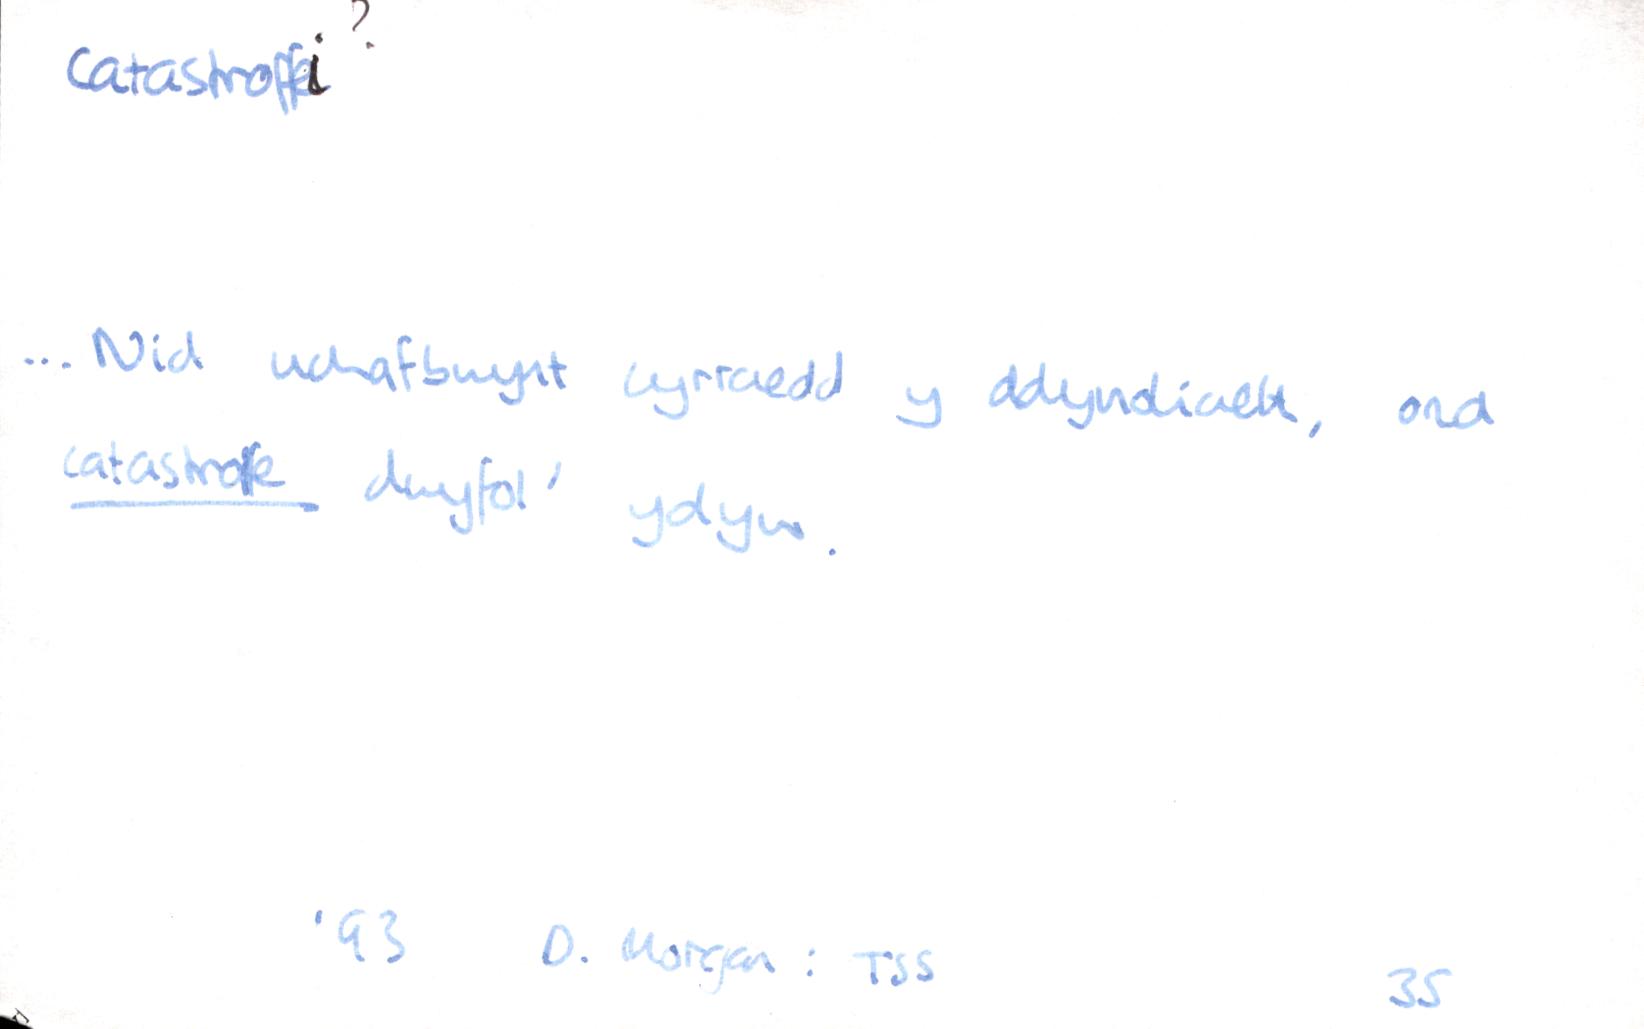 catastroffi?
... Nid uchafbwynt cyrraedd y ddyndiaeth, ond
catastroffe dwyfol' ydyw.
'93 D. Morgan : TSS 35